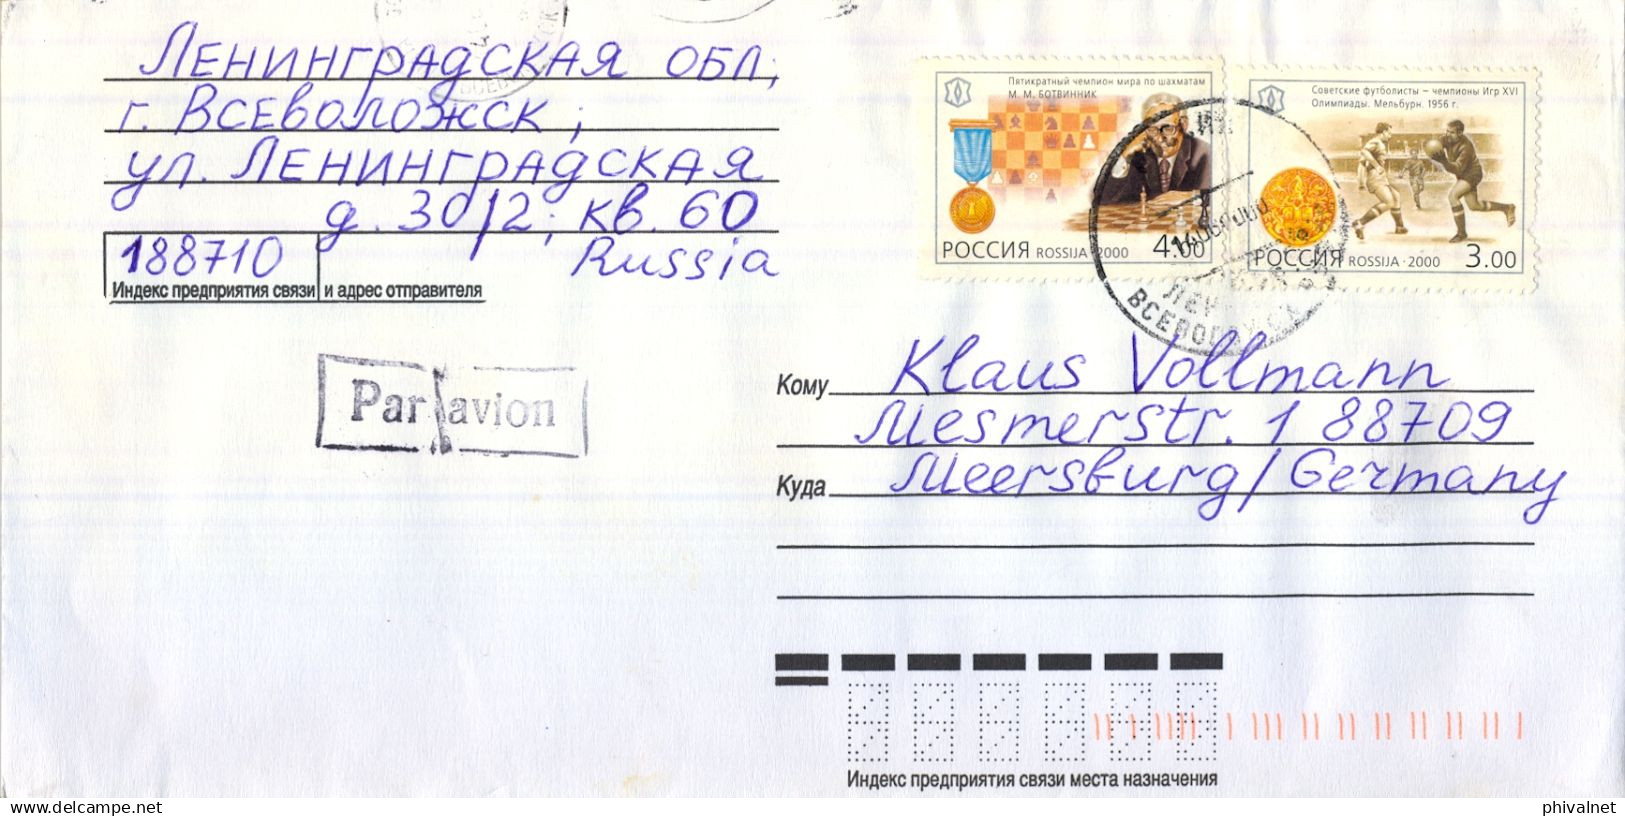 ЛЕНИНГРАДСКАЯ ОБЛ,
г. ВСЕВОЛОЖСК,
ул. ЛЕНИНГРАДСКАЯ
д. 30/2; кв. 60
188710 Russia
Индекс предприятия связи и адрес отправителя
Пятикратный чемпион мира по шахматам
М. М. БОТВИННИК
РОССИЯ ROSSIJA · 2000 4.00
Советские футболисты – чемпионы Игр XVI
Олимпиады. Мельбурн. 1956 г.
РОССИЯ ROSSIJA · 2000 3.00
Par avion
Кому Klaus Vollmann
Mesmerstr. 1 88709
Куда Meersburg/Germany
Индекс предприятия связи места назначения
www.delcampe.com
phivalnet